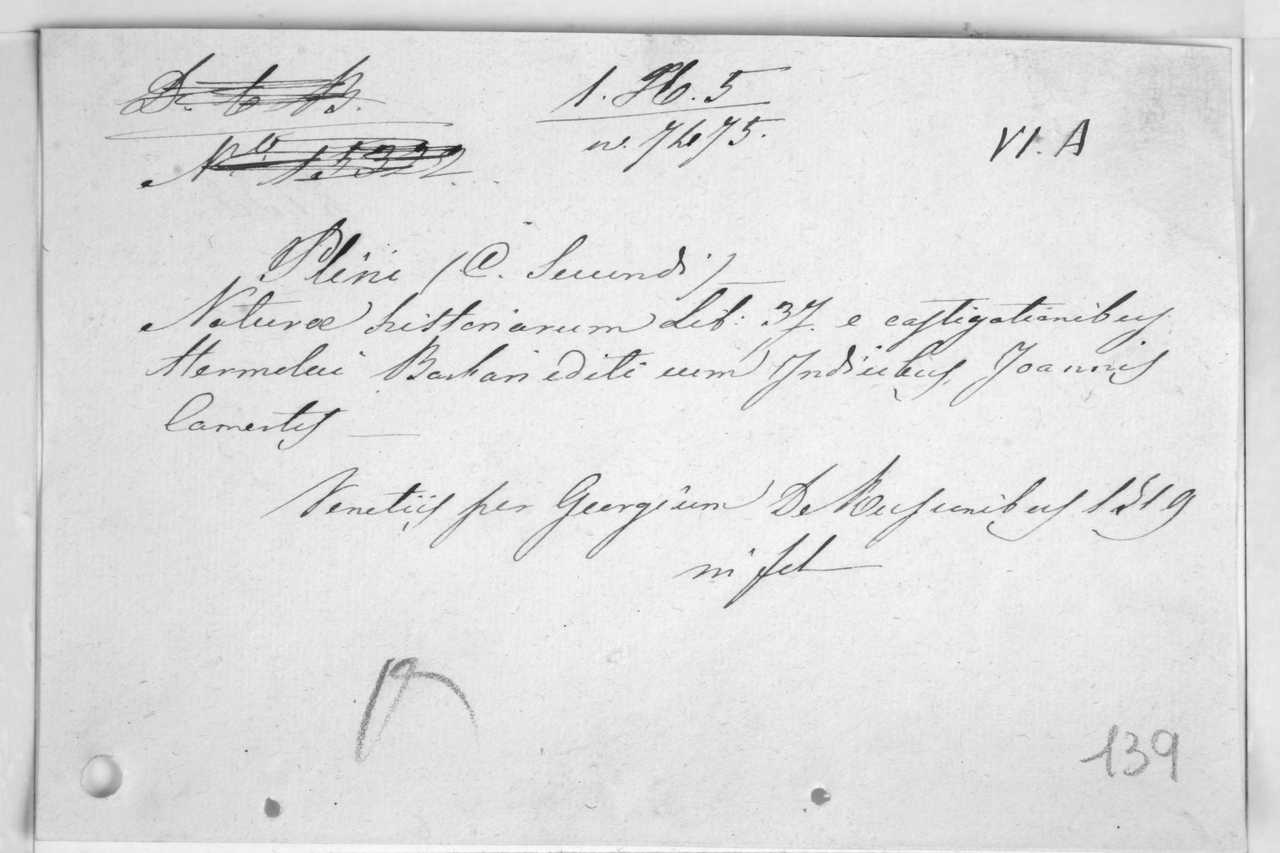 D. b B.
Nº. 15322.
1. H. 5
n. 7475.
VI. A
Plinii (C. Secundi)
Naturæ historiarum Lib: 37. e castigationibus
Hermolai Barbari editi cum Indicibus Joannis
Camertis —
Venetiis per Georgium De Rusconibus 1519
in fol
139